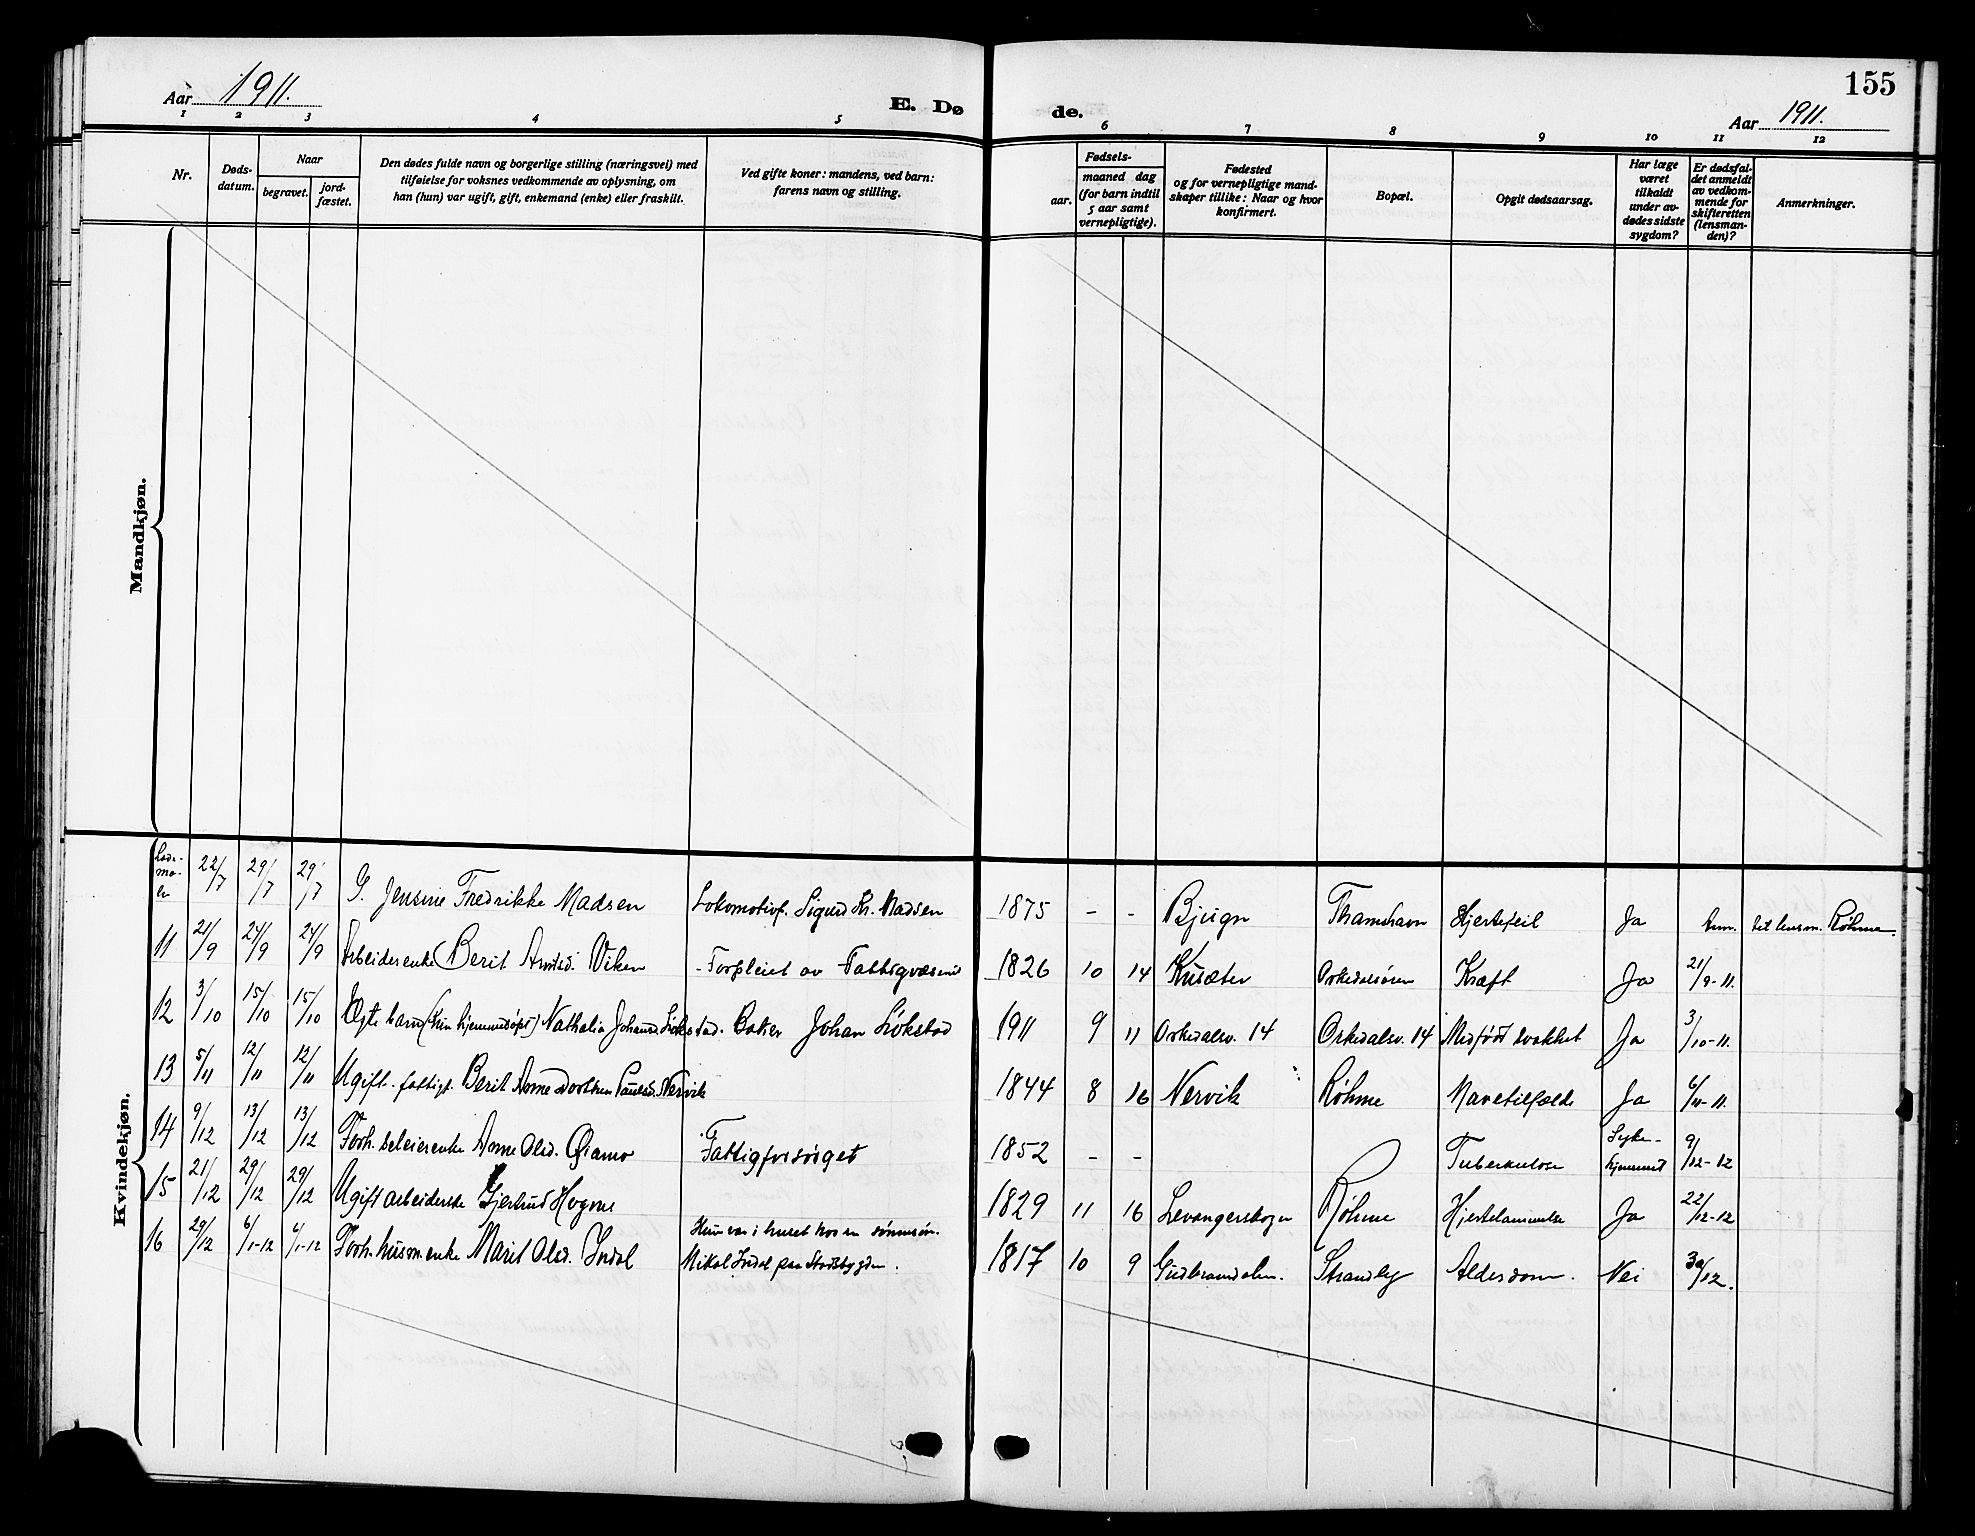 155
Aar 1911.
E. Dø
de.
Aar 1911.
1 2 3 4 5 6 7 8 9 10 11 12
Nr.
Døds-
datum.
Naar
begravet.
jord-
fæstet.
Den dødes fulde navn og borgerlige stilling (næringsvei) med
tilføielse for voksnes vedkommende av oplysning, om
han (hun) var ugift, gift, enkemand (enke) eller fraskilt.
Ved gifte koner: mandens, ved barn:
farens navn og stilling.
Fødsels-
aar.
maaned dag
(for barn indtil
5 aar samt
vernepligtige).
Fødested
og for vernepligtige mand-
skaper tillike: Naar og hvor
konfirmert.
Bopæl.
Opgit dødsaarsag.
Har læge
været
tilkaldt
under av-
dødes sidste
sygdom?
Er dødsfal-
det anmeldt
av vedkom-
mende for
skifteretten
(lensman-
den)?
Anmerkninger.
Mandkjøn.
Kvindekjøn.
22/7 29/7 29/7 G. Jensine Fredrikke Madsen Lokomotivf. Sigurd Kr. Madsen 1875 - - Bjugn Thamshavn Hjertefeil Ja Anm. til lensm. Røhme.
11 21/9 24/9 24/9 Arbeiderenke Berit Arntsd. Viken - Forpleiet av Fattigvæsenet 1826 10 14 Kusæter Orkedalsøren Kræft Ja 21/9-11.
12 3/10 15/10 15/10 Ægte barn (kun hjemmedøpt) Nathalia Johanna Løkstad. Baker Johan Løkstad 1911 9 11 Orkedalsø. 14 Orkedalsø. 14 Medfødt svakhet Ja 3/10-11.
13 5/11 12/11 12/11 Ugift. fattigl. Berit Anne Dorthea Paulsd. Nervik 1844 8 16 Nervik Røhme Mavetilfælde Ja 6/11-11.
14 9/12 13/12 13/12 Forh. seleierenke Anne Olsd. Fattigforsørget 1852 - - Tuberkulose Syke-
hjemmet 9/12-12
15 21/12 29/12 29/12 Ugift arbeiderske Gjertrud Hogne 1829 11 16 Levangerskogn Røhme Hjertelammelse Ja 22/12-12
16 29/12 6/1-12 6/1-12 Forh. husm.enke Marit Olsd. Indal Hun var i huset hos en sønnesøn.
Mikal Indal paa Stadsbygden. 1817 10 9 Gudbrandsdalen. Strandly Alderdom. Nei 30/12.